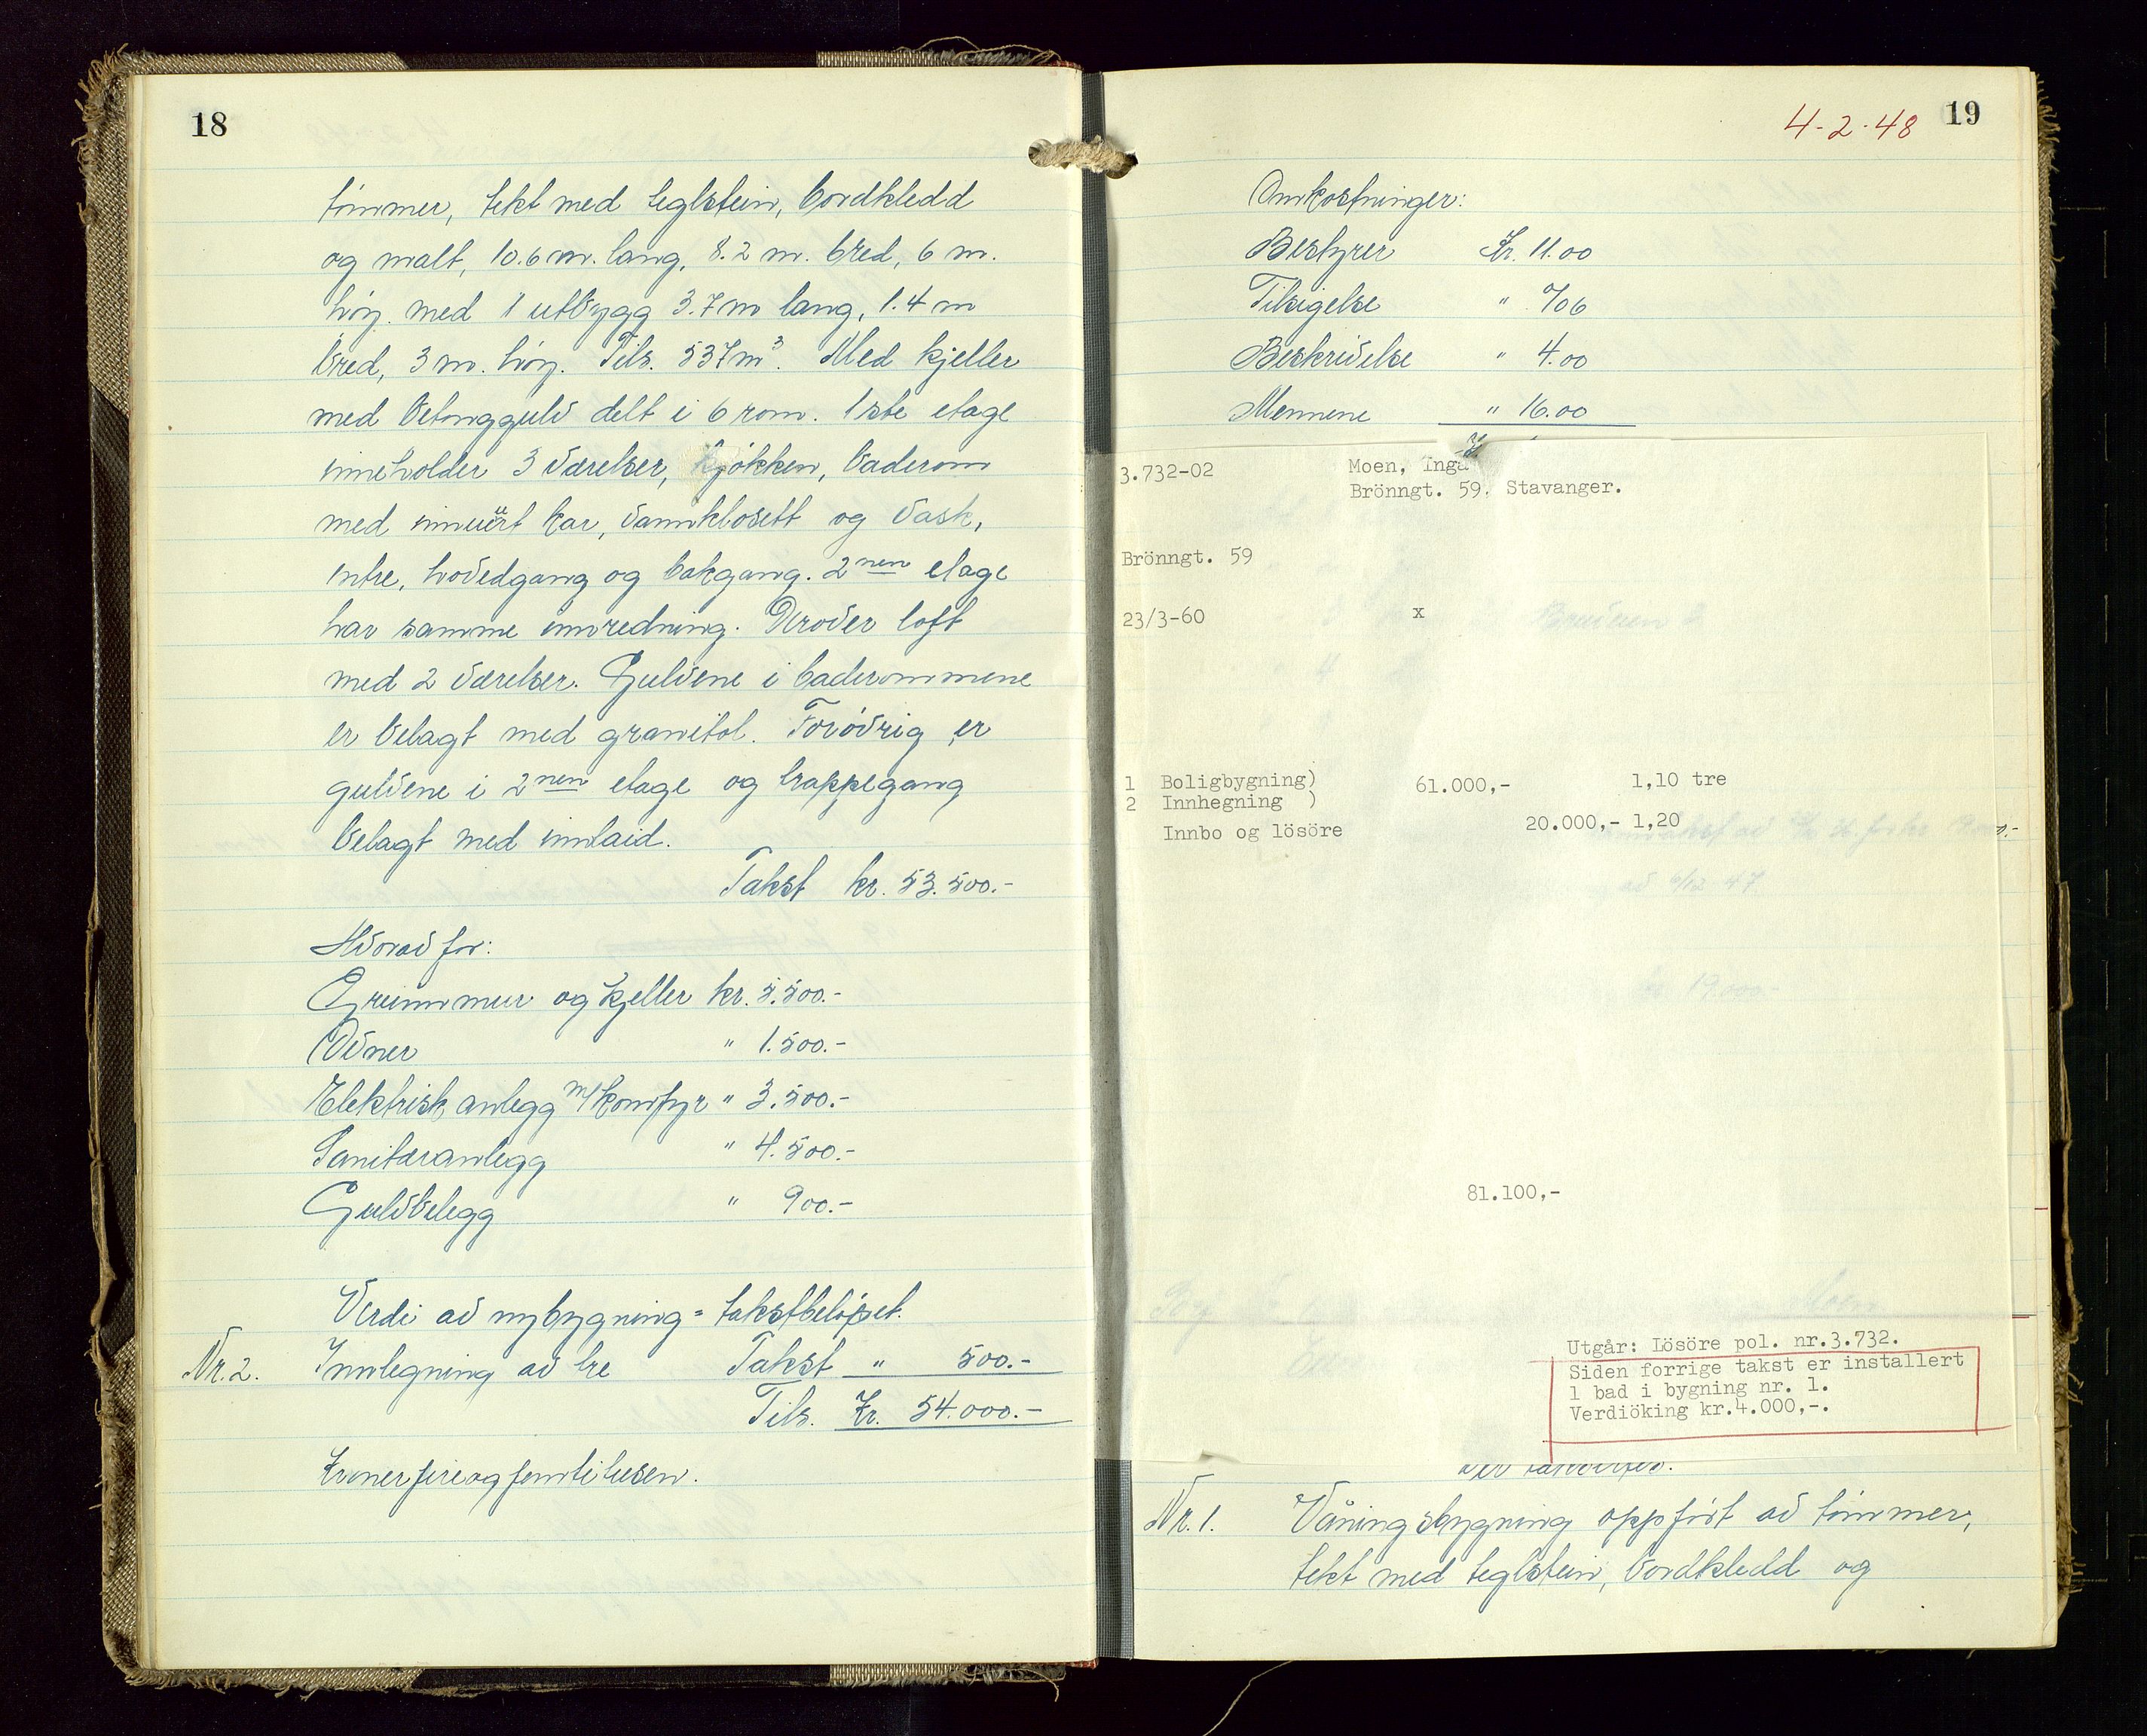 18
tömmer, tekt med teglstein, bordkledd
og malt, 10.6 m. lang, 8.2 m. bred, 6 m.
høy. med 1 utbygg 3.7 m lang, 1.4 m
bred, 3 m. høy. Tils. 537 m³. Med kjeller
med betonggulv delt i 6 rom. 1ste etage
inneholder 3 værelser, kjøkken, baderom
med innmurt kar, vannklosett og vask,
entre, hovedgang og bakgang. 2nen etage
har samme innredning. Derover loft
med 2 værelser. Gulvene i baderommene
er belagt med granitol. Forøvrig er
gulvene i 2nen etage og trappegang
belagt med innlaid.
Takst kr. 53.500.-
Hvorav for:
Grunnmur og kjeller kr. 5.500.-
Ovner " 1.500.-
Elektrisk anlegg m/komfyr " 3.500.-
Sanitæranlegg " 4.500.-
Gulvbelegg " 900.-
Verdi av nybygning = takstbeløpet.
Nr. 2. Innhegning av tre Takst " 500.-
Tils. Kr. 54.000.-
Kroner fireogfemtitusen.
4-2-48 19
Omkostninger:
Bestyrer Kr. 11.00
Tilsigelse "
Beskrivelse " 4.00
Mennene " 16.00
3.732-02 Moen, Inga
Brönngt. 59. Stavanger.
Brönngt. 59
23/3-60 x
1 Boligbygning) 61.000,- 1,10 tre
2 Innhegning )
Innbo og lösöre 20.000,- 1,20
81.100,-
Utgår: Lösöre pol. nr.3.732.
Siden forrige takst er installert
1 bad i bygning nr. 1.
Verdiöking kr.4.000,-.
Nr. 1. Våningsbygning oppført av tömmer,
tekt med teglstein, bordkledd og